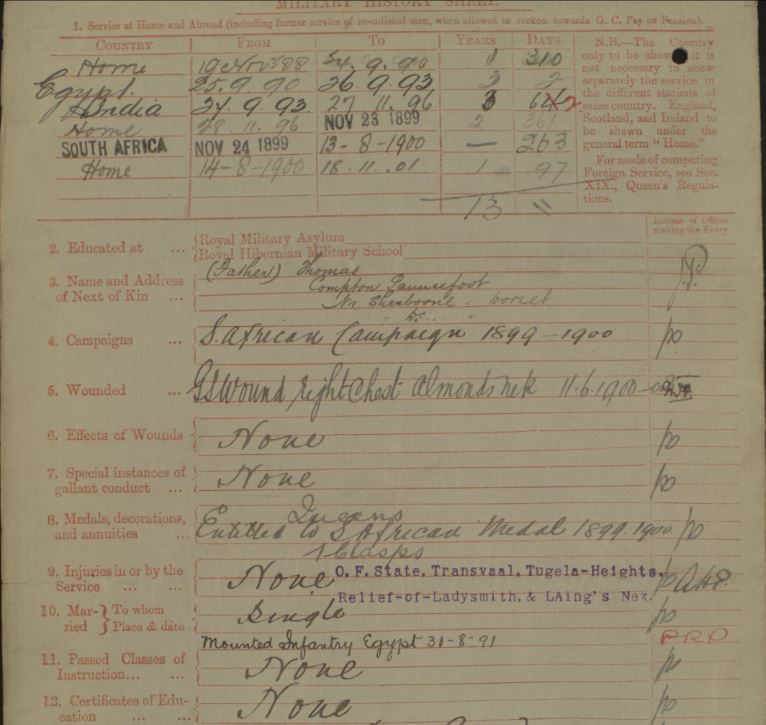 MILITARY HISTORY SHEET.
1. Service at Home and Abroad (including former service of re-enlisted men, when allowed to reckon towards G. C. Pay or Pension).
COUNTRY FROM TO YEARS DAYS
Home 88 24.9.90 1 310
Egypt. 25.9.90 26.9.93 3 2
India 27.9.93. 27 11.96 3
Home 28.11.96 NOV 23 1899 2 361
SOUTH AFRICA NOV 24 1899 13-8-1900 — 263
Home 14-8-1900 18.11.01 1 97
13 "
N.B.—The Country
only to be shown, it is
not necessary to show
separately the service in
the different stations of
same country. England,
Scotland, and Ireland to
be shewn under the
general term “Home.”
For mode of computing
Foreign Service, see Sec.
XIX., Queen's Regula-
tions.
Initials of Officer
making the Entry
2. Educated at ... Royal Military Asylum
Royal Hibernian Military School
3. Name and Address
of Next of Kin ... (Father) Thomas
Compton Pauncefoot
Nr Sherborne. Dorset
4. Campaigns ... S. African Campaign 1899-1900
5. Wounded ... GSWound right Chest Almonds Nek 11.6.1900
6. Effects of Wounds None
7. Special instances of
gallant conduct ... None
8. Medals, decorations,
and annuities ... Queens
Entitled to S African Medal 1899.1900
Clasps
9. Injuries in or by the
Service ... None O.F.State, Transvaal, Tugela-Heights,
Relief-of-Ladysmith, & LAing's Nek.
10. Mar-
ried } To whom
Place & date Single
Mounted Infantry Egypt 31-8-91 P.R.P
11. Passed Classes of
Instruction... ... None
12. Certificates of Edu-
cation ... ... None